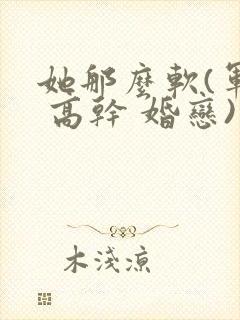 她那麼軟(軍
高幹 婚戀)
木淺涼